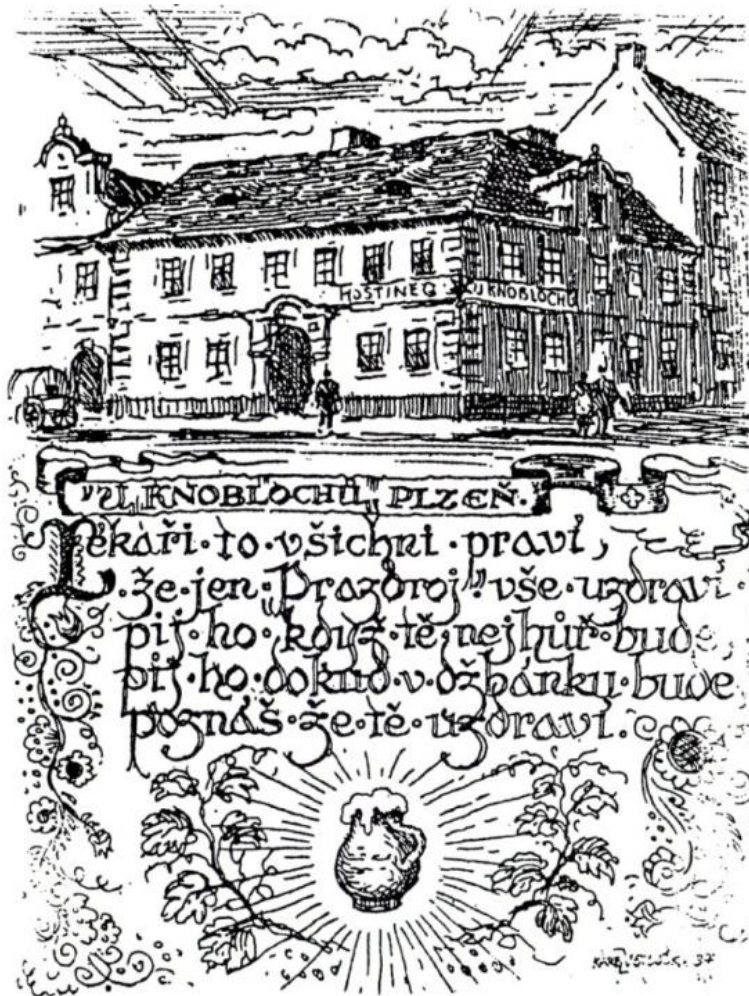 HOSTINEC U KNOBLOCHŮ
"U KNOBLOCHŮ" PLZEŇ.
Lékaři · to · všichni · praví,
· že · jen "Prazdroj" vše · uzdraví
pij · ho · když · tě · nejhůř · bude,
pij · ho · dokud · v · džbánku · bude
poznáš · že · tě · uzdraví.
37